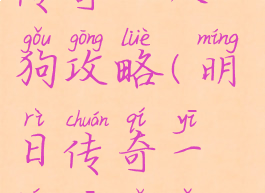 gǒu gōng lüè míng
狗攻略(明
rì chuán qí yī
日传奇一